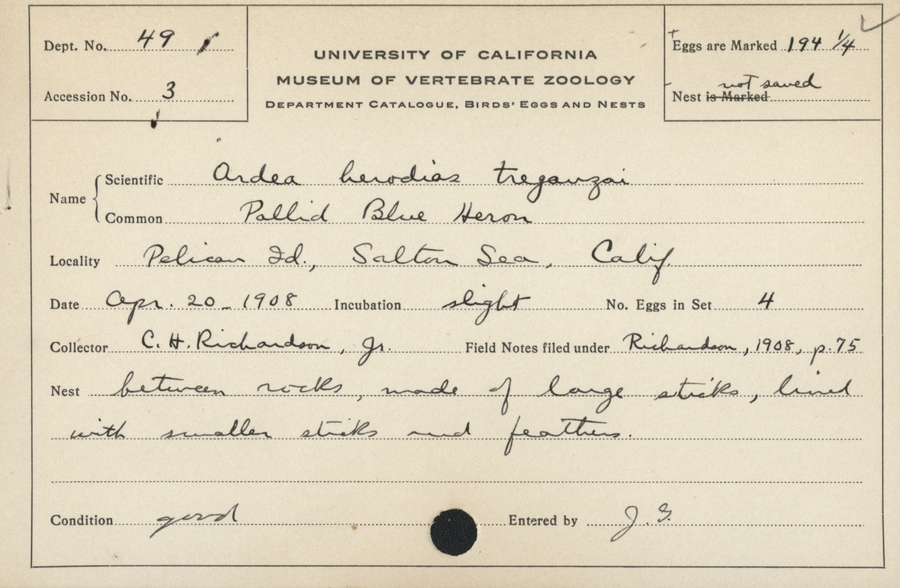 Dept. No. 49
UNIVERSITY OF CALIFORNIA
MUSEUM OF VERTEBRATE ZOOLOGY
DEPARTMENT CATALOGUE, BIRDS' EGGS AND NESTS
Eggs are Marked 194 1/4
Accession No. 3
Nest is Marked not saved
Name
Scientific Ardea herodias treganzai
Common Pallid Blue Heron
Locality Pelican Id., Salton Sea, Calif.
Date Apr. 20 - 1908 Incubation slight No. Eggs in Set 4
Collector C. H. Richardson, Jr. Field Notes filed under Richardson, 1908, p. 75
Nest between rocks, made of large sticks, lined
with smaller sticks and feathers.
Condition good Entered by J. G.